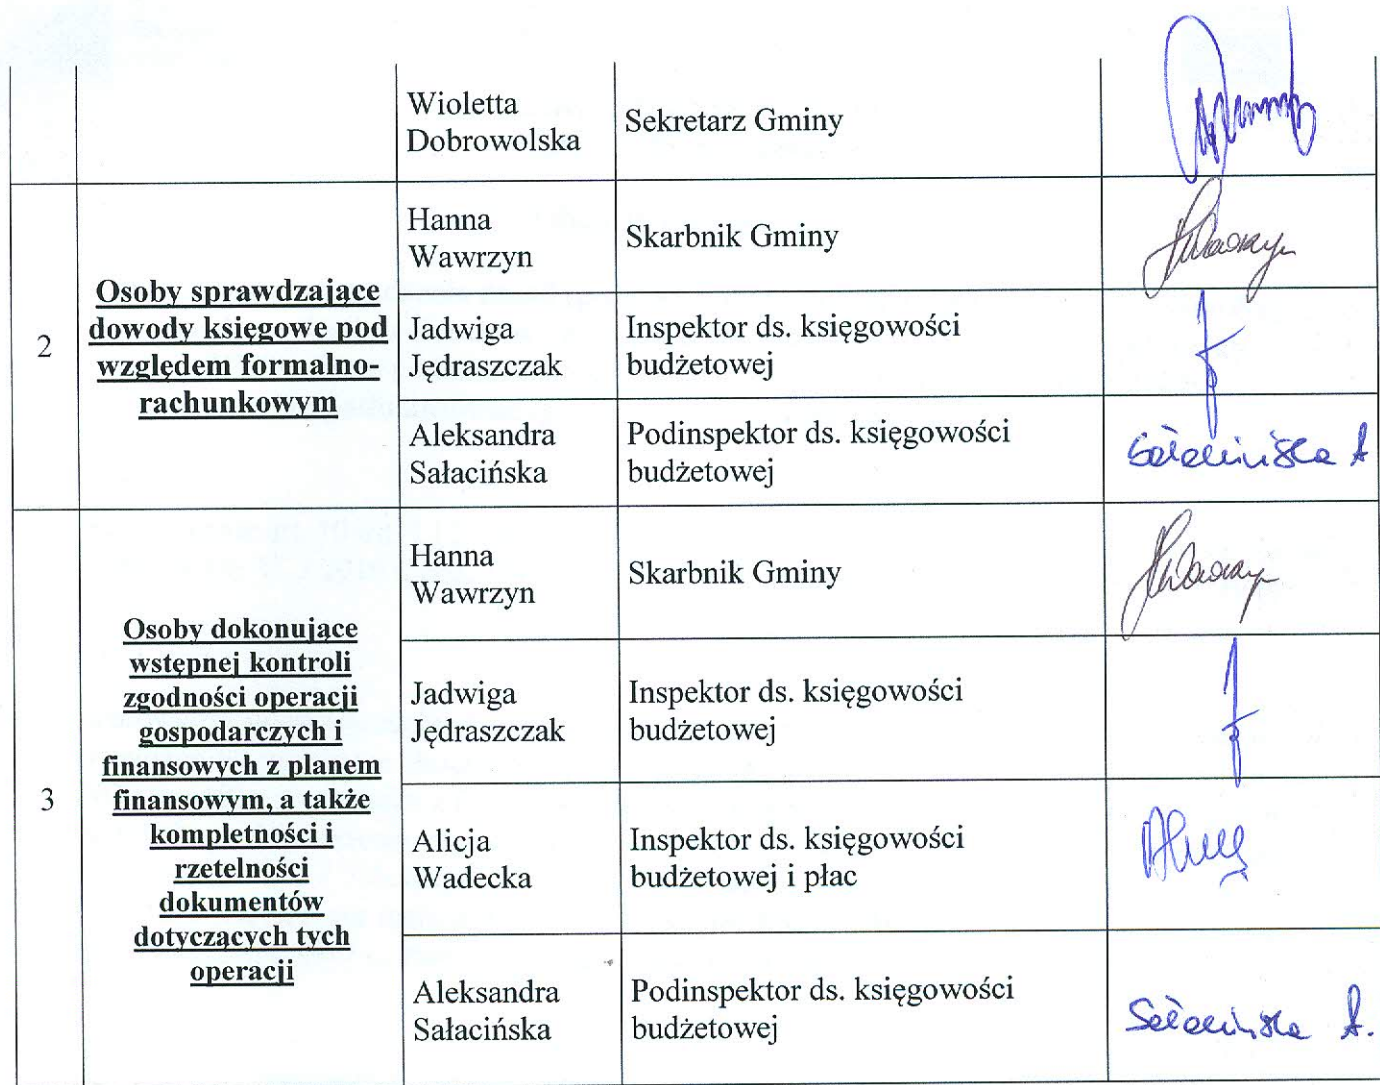 Wioletta
Dobrowolska
Sekretarz Gminy
2
Osoby sprawdzające
dowody księgowe pod
względem formalno-
rachunkowym
Hanna
Wawrzyn
Skarbnik Gminy
Jadwiga
Jędraszczak
Inspektor ds. księgowości
budżetowej
Aleksandra
Sałacińska
Podinspektor ds. księgowości
budżetowej
Sałacińska A
3
Osoby dokonujące
wstępnej kontroli
zgodności operacji
gospodarczych i
finansowych z planem
finansowym, a także
kompletności i
rzetelności
dokumentów
dotyczących tych
operacji
Hanna
Wawrzyn
Skarbnik Gminy
Jadwiga
Jędraszczak
Inspektor ds. księgowości
budżetowej
Alicja
Wadecka
Inspektor ds. księgowości
budżetowej i płac
Aleksandra
Sałacińska
Podinspektor ds. księgowości
budżetowej
Sałacińska A.